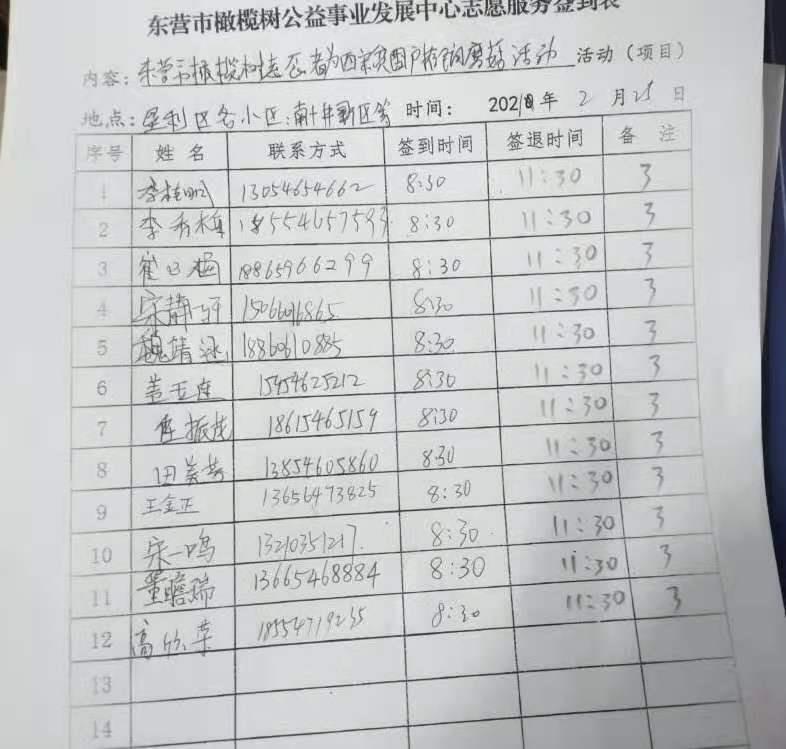 东营市橄榄树公益事业发展中心志愿服务签到表
内容：东营市橄榄树志愿者为西宋贫困户拓宽蘑菇活动 活动（项目）
地点：垦利区各小区、南十井新区等 时间： 2021年 2 月 25 日
序号 姓名 联系方式 签到时间 签退时间 备注
1 13054654662 8:30 11:30 3
2 李秀梅 18554657593 8:30 11:30 3
3 崔日梅 18865966299 8:30 11:30 3
4 宋静 15066016865 8:30 11:30 3
5 魏靖泳 18860610885 8:30 11:30 3
6 盖玉莲 15454625212 8:30 11:30 3
7 振茂 18615465159 8:30 11:30 3
8 田美芳 13854605860 8:30 11:30 3
9 王金正 13656473825 8:30 11:30 3
10 宋一鸣 13210351217 8:30 11:30 3
11 董瞻瑞 13665468884 8:30 11:30 3
12 高欣荣 18554719235 8:30 11:30 3
13
14